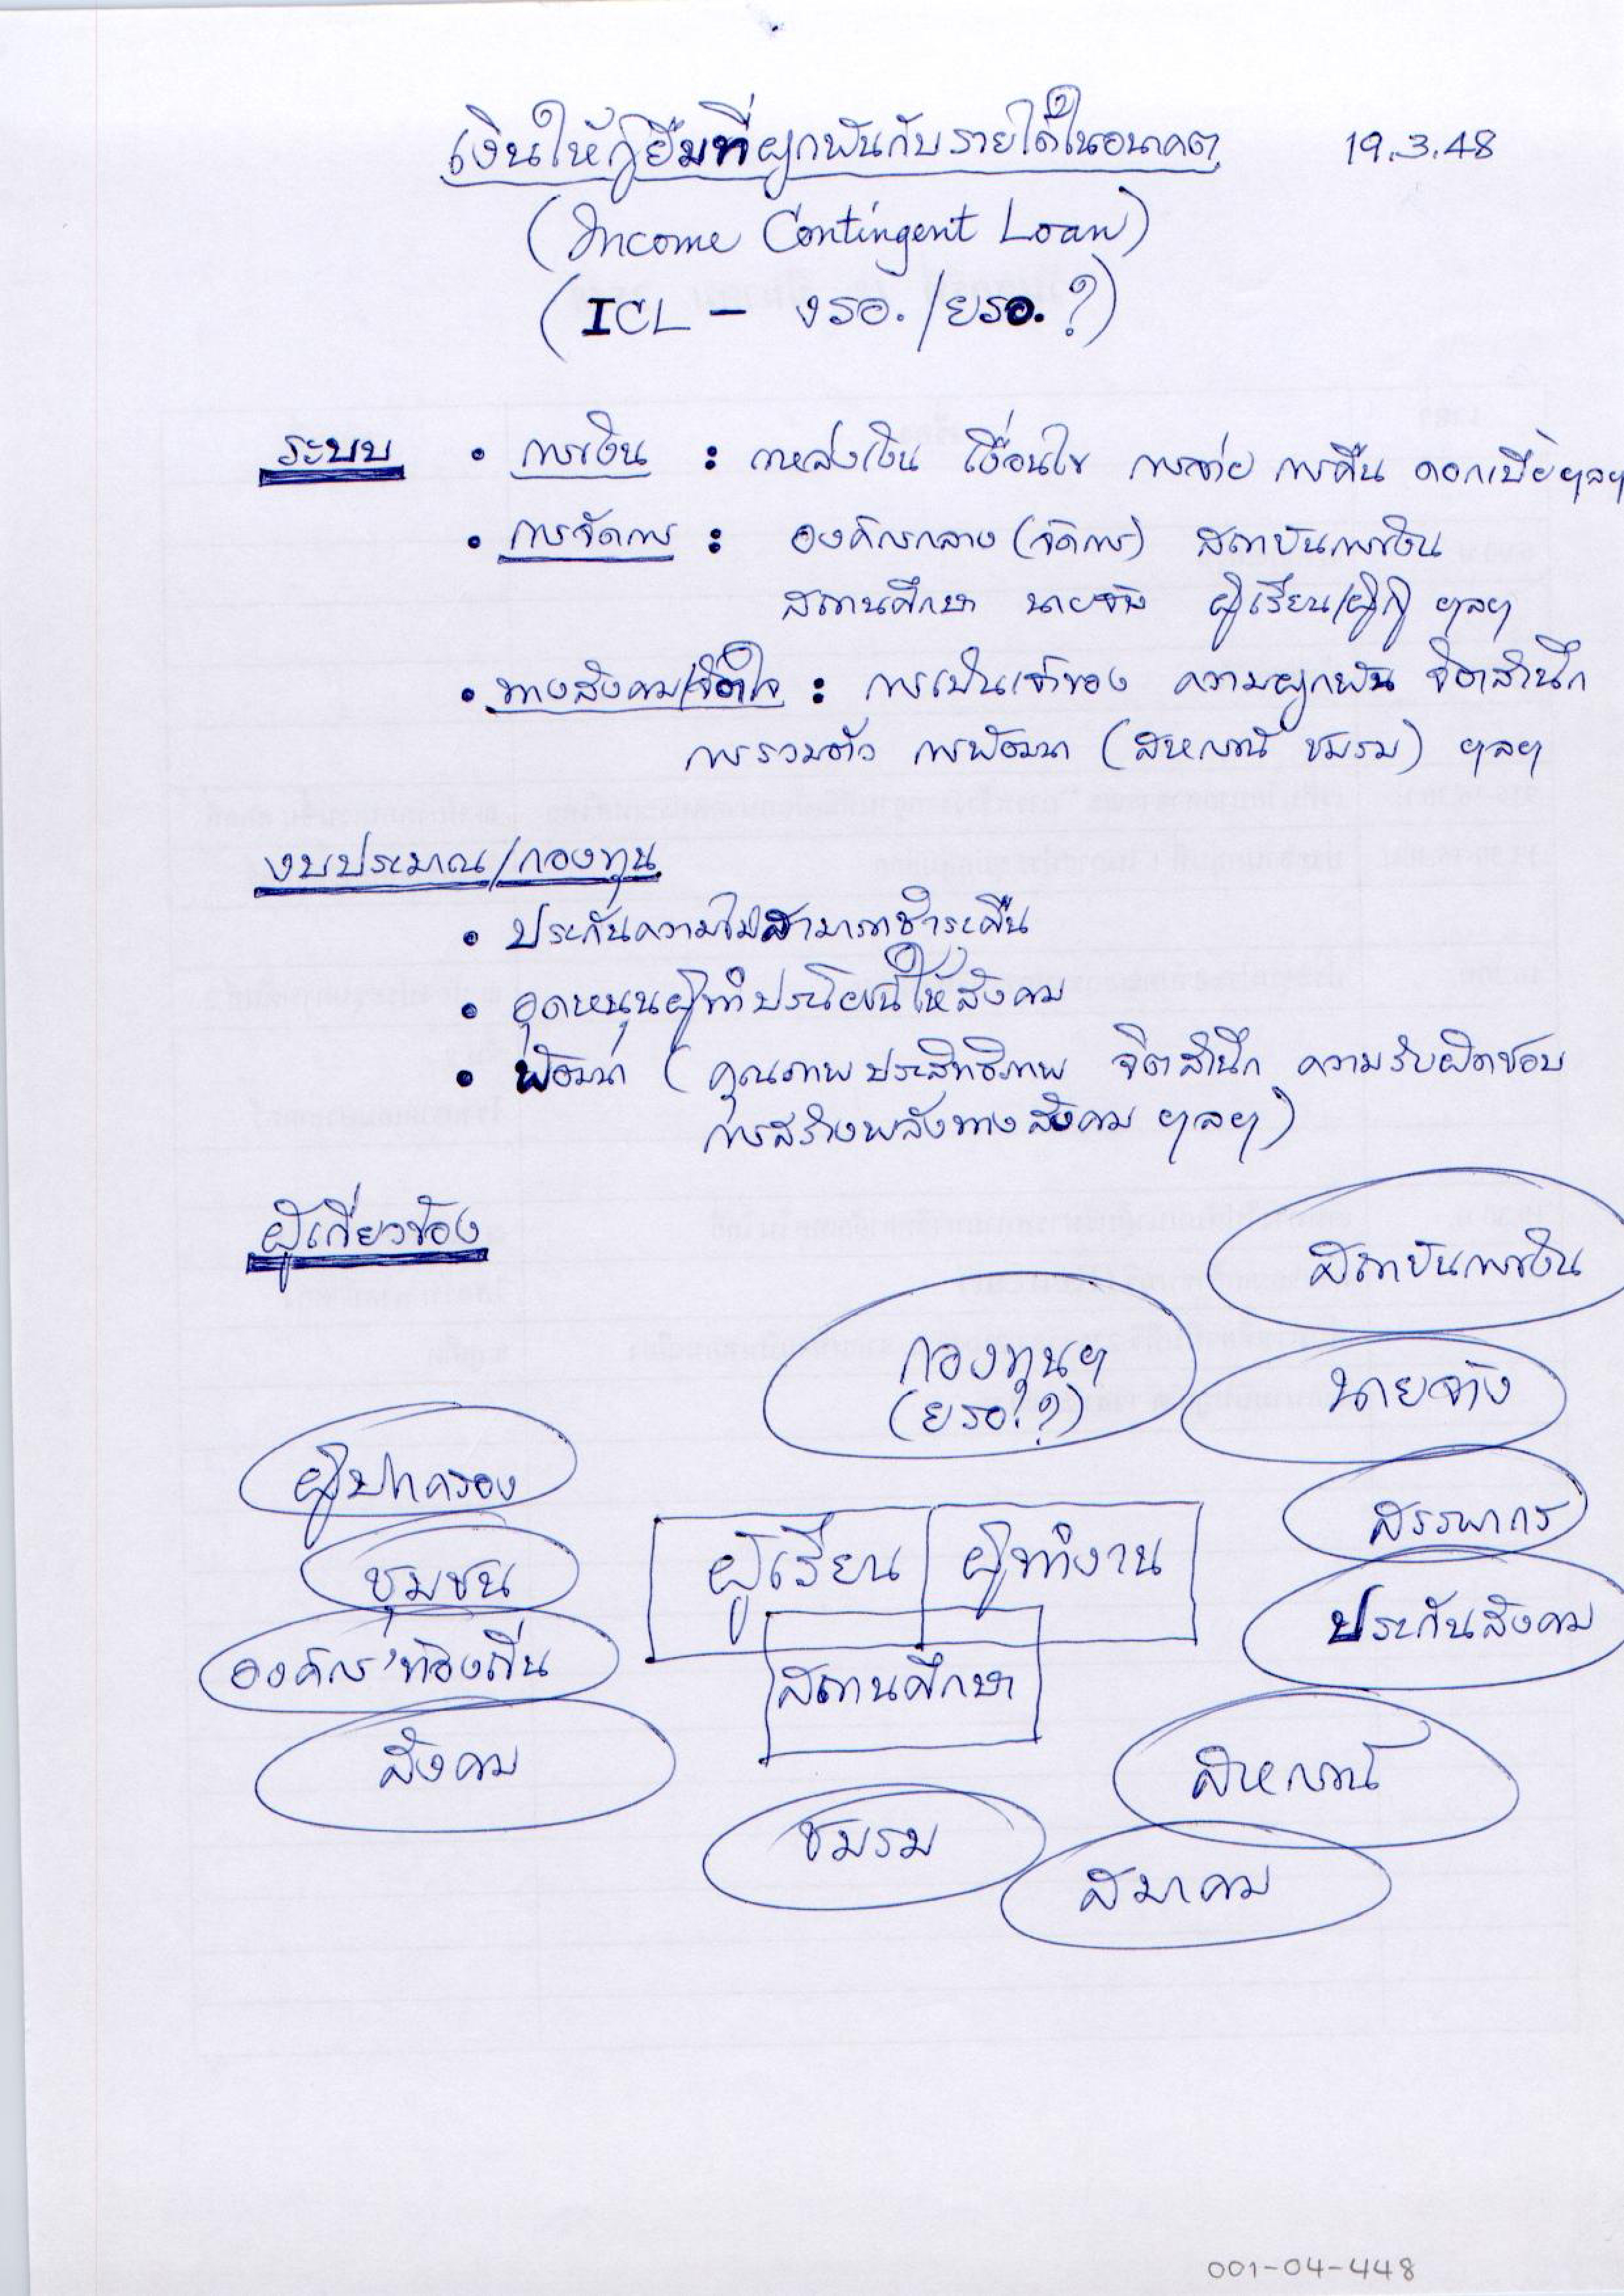 เงินให้กู้ยืมที่ผูกพันกับรายได้ในอนาคต
19.3.48
(Income Contingent Loan)
(ICL – งรอ./ยรอ.?)
ระบบ • การเงิน : แหล่งเงิน เงื่อนไข การจ่าย การคืน ดอกเบี้ย ฯลฯ
• การจัดการ : องค์กรกลาง (จัดการ) สถาบันการเงิน
สถานศึกษา นายจ้าง ผู้เรียน/ผู้กู้ ฯลฯ
• ทางสังคม/จิตใจ : การเป็นเจ้าของ ความผูกพัน จิตสำนึก
การรวมตัว การพัฒนา (สหกรณ์ ชมรม) ฯลฯ
งบประมาณ/กองทุน
• ประกันความไม่สามารถชำระคืน
• อุดหนุนผู้ทำประโยชน์ให้สังคม
• พัฒนา (คุณภาพ ประสิทธิภาพ จิตสำนึก ความรับผิดชอบ
การสร้างพลังทางสังคม ฯลฯ)
ผู้เกี่ยวข้อง
สถาบันการเงิน
กองทุนฯ
(ยรอ.?)
นายจ้าง
ผู้ปกครอง
สรรพากร
ชุมชน
ผู้เรียน
ผู้ทำงาน
ประกันสังคม
องค์กรท้องถิ่น
สถานศึกษา
สังคม
สหกรณ์
ชมรม
สมาคม
001-04-448